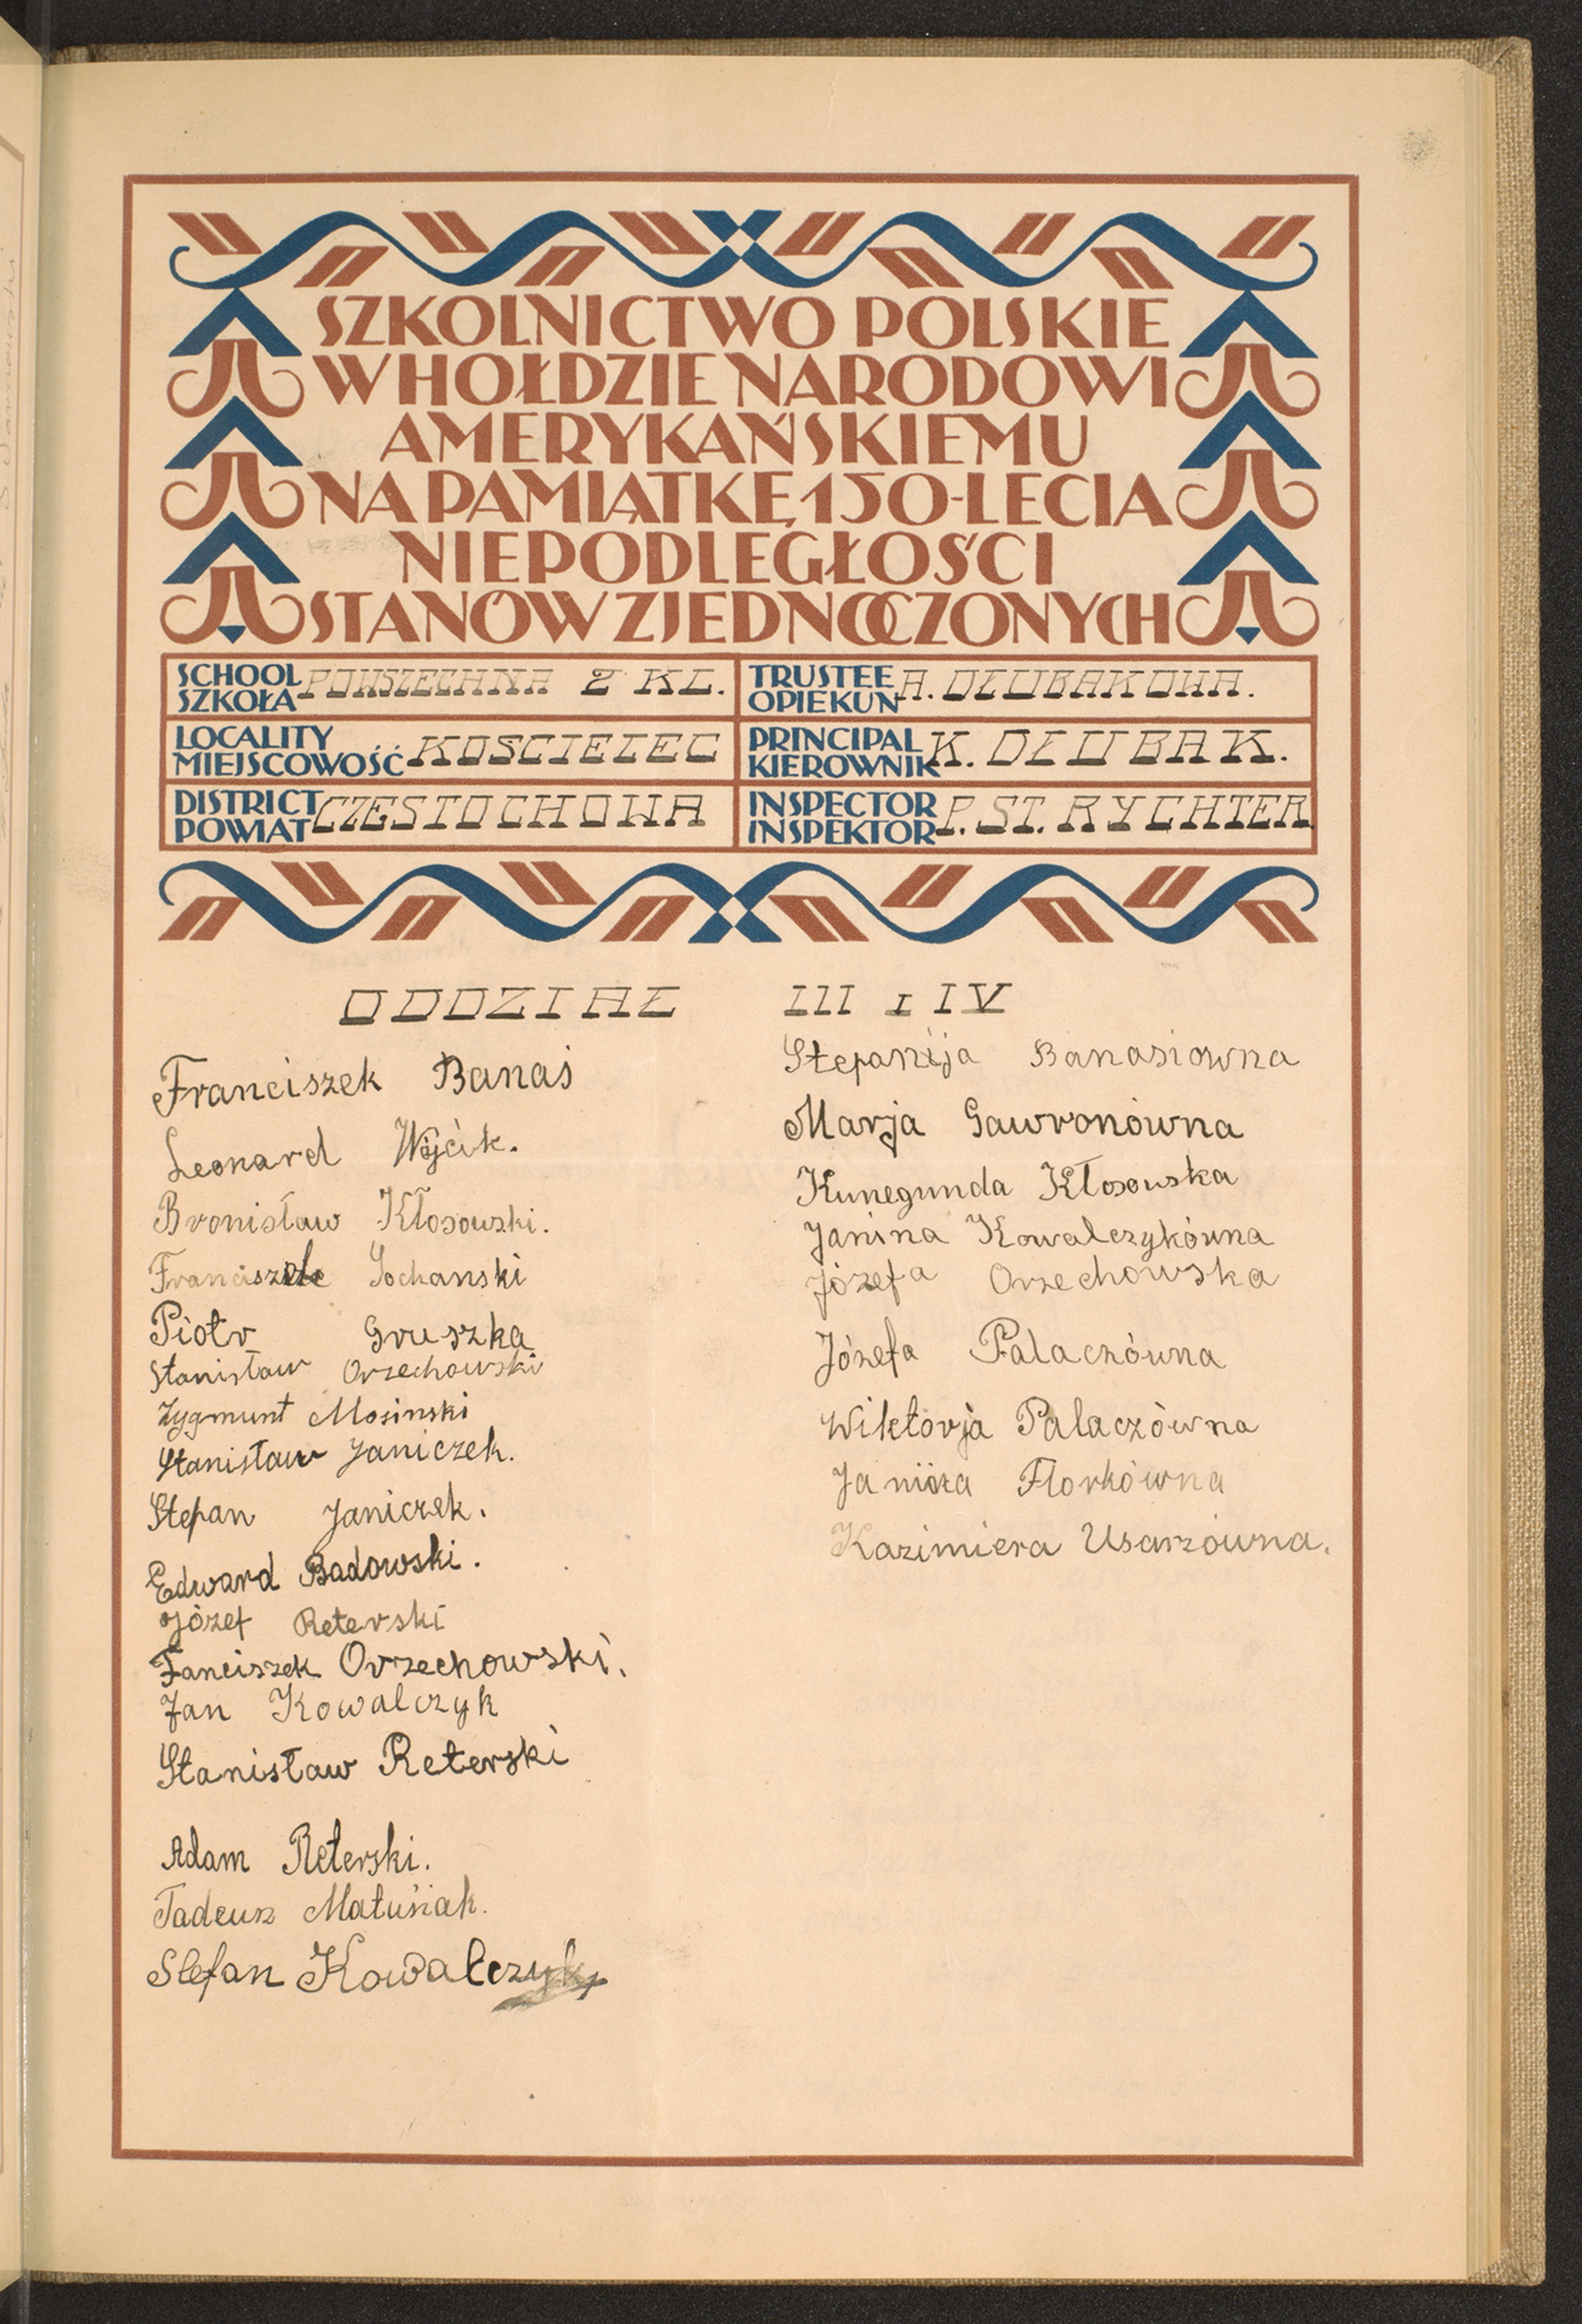 SZKOLNICTWO POLSKIE
W HOŁDZIE NARODOWI
AMERYKAŃSKIEMU
NA PAMIĄTKĘ 150-LECIA
NIEPODLEGŁOŚCI
STANÓW ZJEDNOCZONYCH
SCHOOL
SZKOŁA POWSZECHNA 2 KL.
TRUSTEE
OPIEKUN A. DŁUBAKOWA.
LOCALITY
MIEJSCOWOŚĆ KOŚCIELEC
PRINCIPAL
KIEROWNIK K. DŁUBAK.
DISTRICT
POWIAT CZESTOCHOWA
INSPECTOR
INSPEKTOR P. ST. RYCHTER.
ODDZIAŁ III i IV
Franciszek Banaś
Leonard Wójcik.
Bronisław Kłosowski.
Franciszek Sochanski
Piotr Gruszka
Stanisław Orzechowski
Zygmunt Mosinski
Stanisław Janiczek.
Stepan Janiczek.
Edward Badowski.
Józef Reterski
Fanciszek Orzechowski.
Jan Kowalczyk
Stanisław Reterski
Adam Reterski.
Tadeusz Matuśiak.
Stefan Kowalczyk
Stepanija Banasiowna
Marja Gawronówna
Kunegunda Kłosowska
Janina Kowalczykówna
Józefa Orzechowska
Józefa Palaczówna
Wiktorja Palaczówna
Janina Florkówna
Kazimiera Usarzówna.